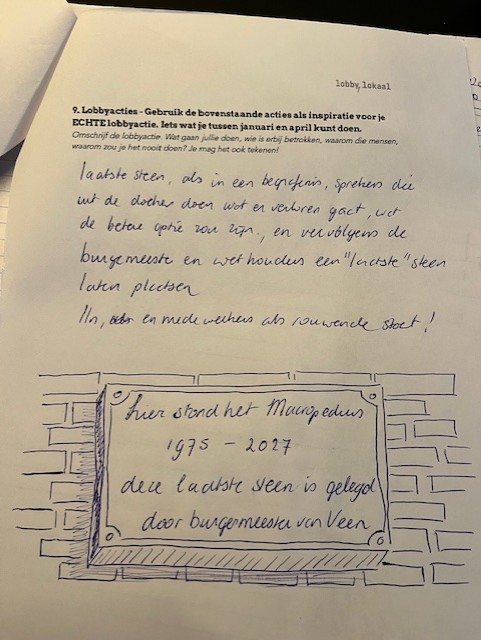 lobby lokaal
9. Lobbyacties - Gebruik de bovenstaande acties als inspiratie voor je
ECHTE lobbyactie. Iets wat je tussen januari en april kunt doen.
Omschrijf de lobbyactie. Wat gaan jullie doen, wie is erbij betrokken, waarom die mensen,
waarom zou je het nooit doen? Je mag het ook tekenen!
laatste steen, als in een begrafenis, sprekers die
uit de doeken doen wat er verloren gaat, wat
de betere optie zou zijn, en vervolgens de
burgemeester en wethouders een "laatste" steen
laten plaatsen
en medewerkers als rouwende stoet!
hier stond het Macropedius
1975 - 2027
deze laatste steen is gelegd
door burgermeester van Veen